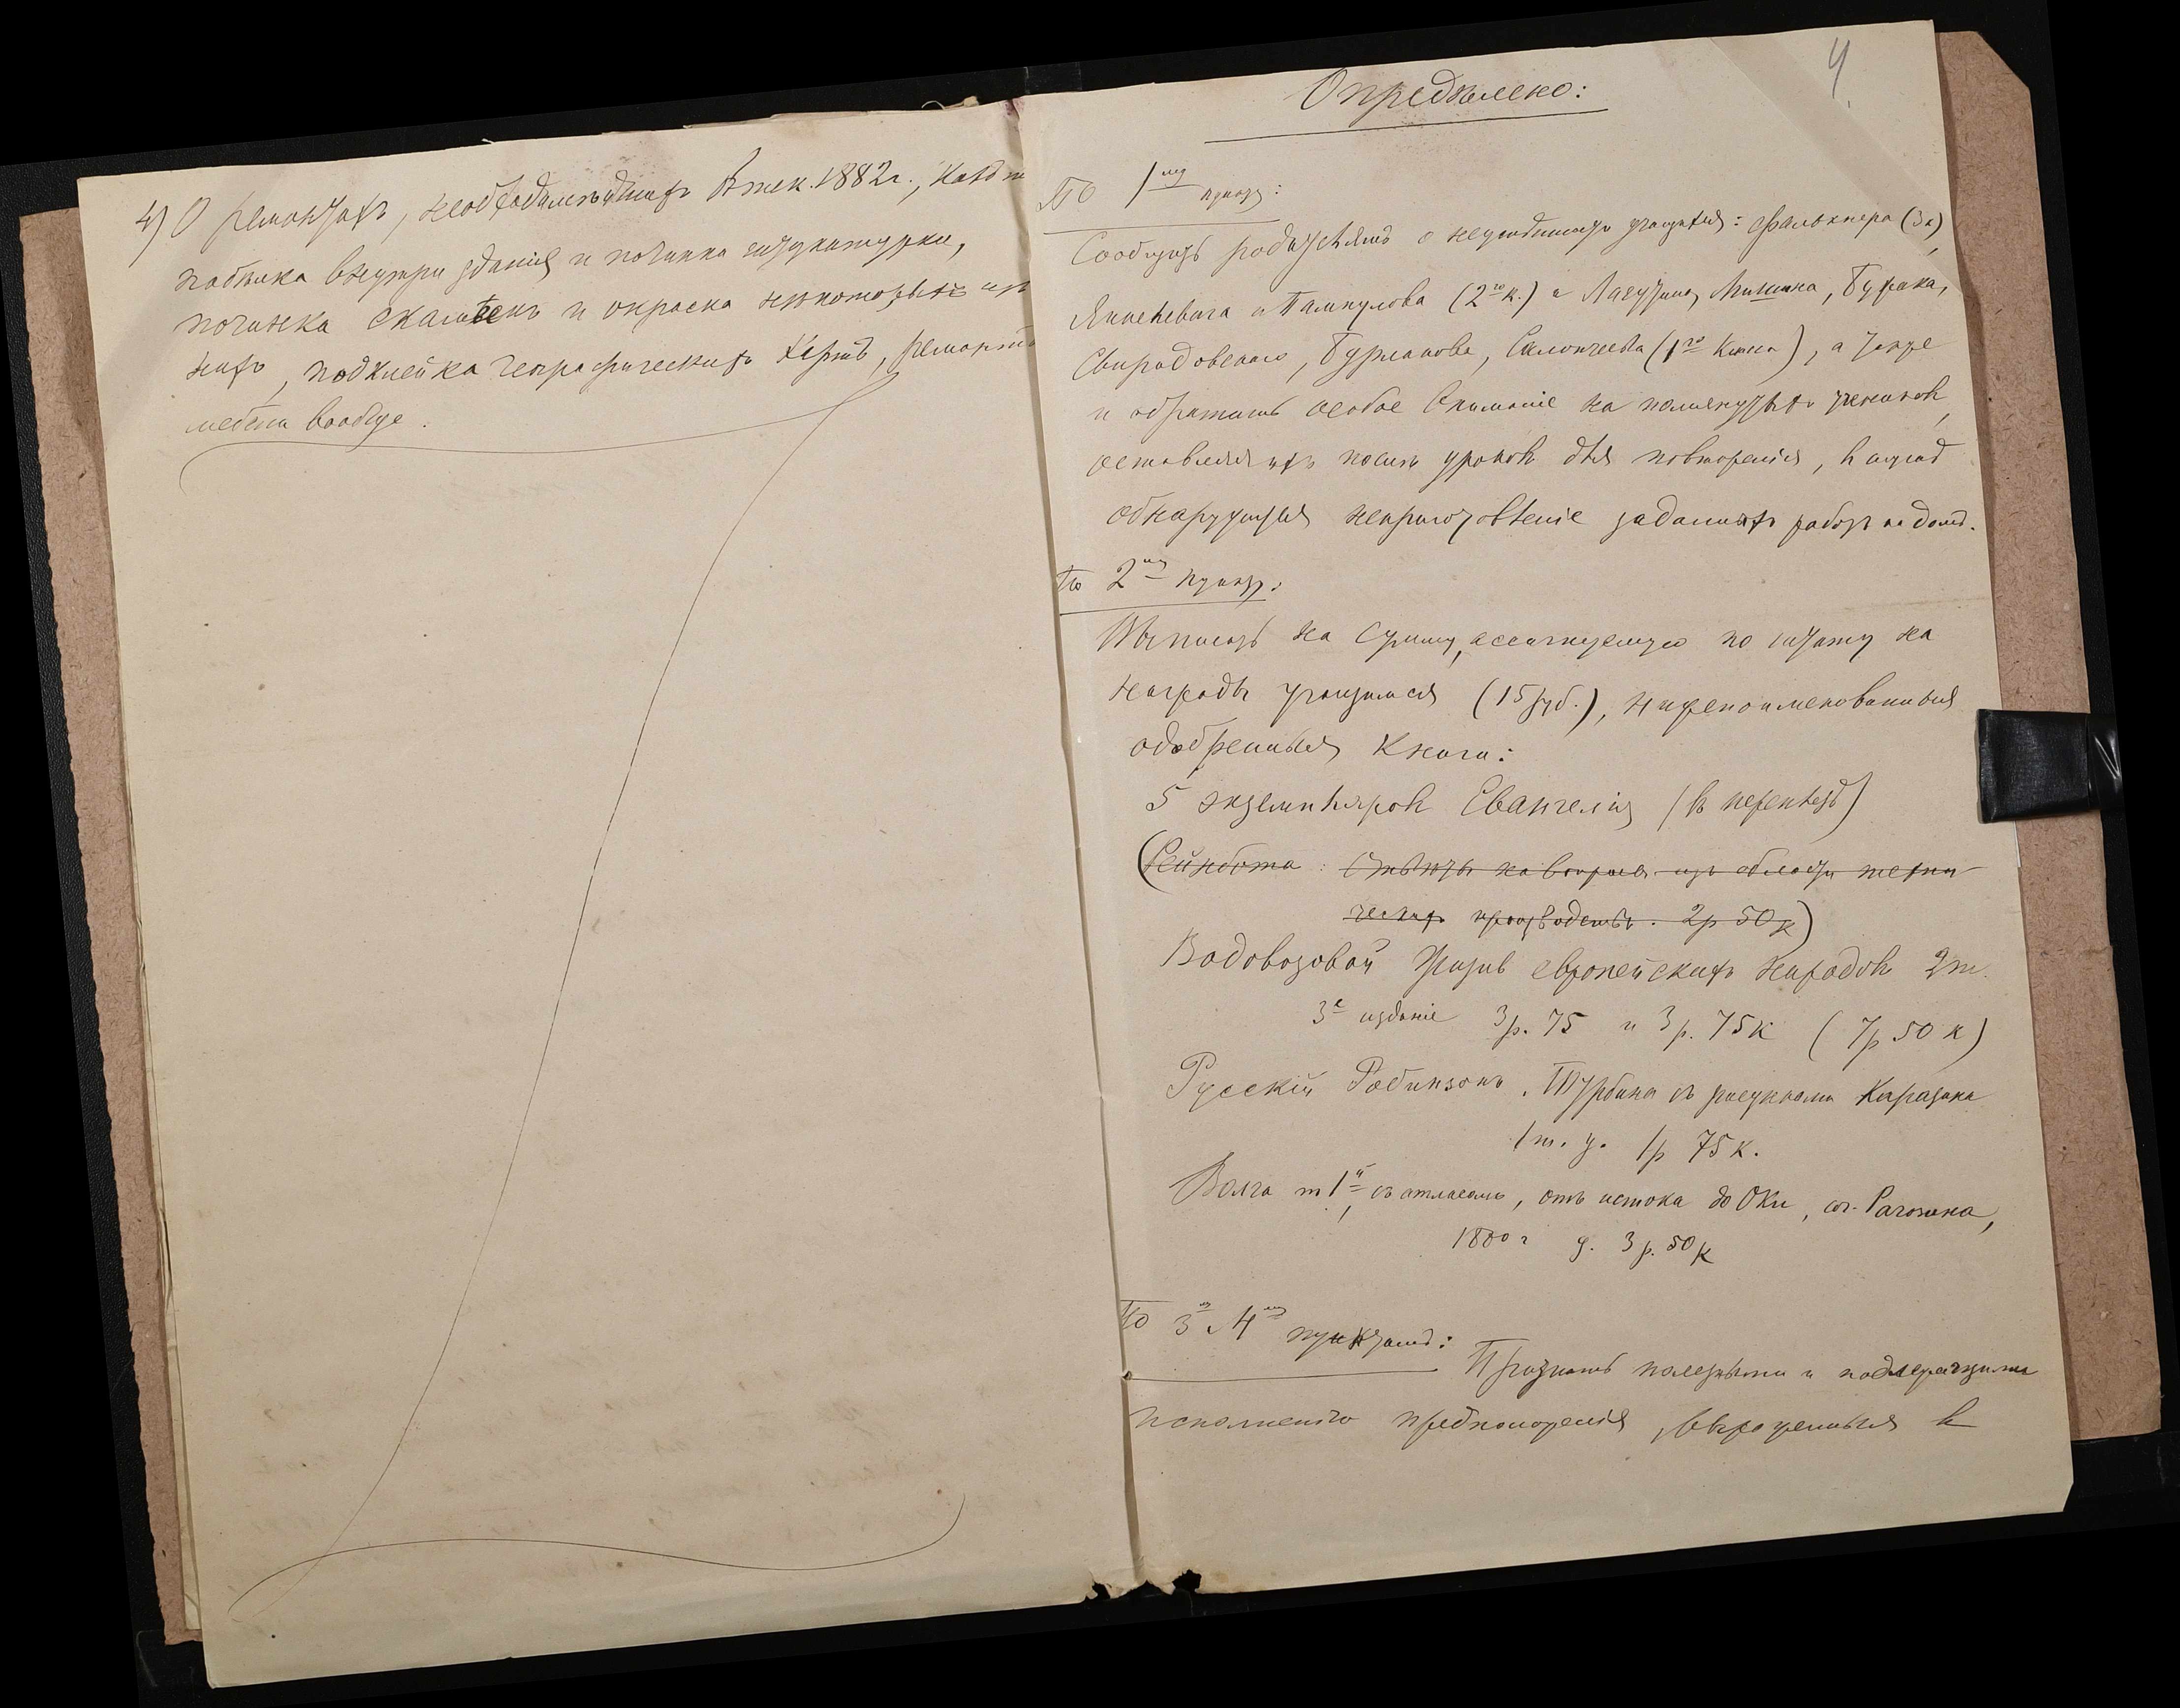 4) О ремонтахъ, необходимѣйшихъ въ тек. 1882 г., какъ то
побѣлка внутри зданія и починка штукатурки,
починка скамеекъ и окраска нѣкоторыхъ изъ
нихъ, подклейка географическихъ картъ, ремонтъ
мебели вообще.
4
Опредѣлено:
По 1му пункту:
Сообщить родителямъ о неуспѣвшихъ учащихся: Фалькнера (3 к),
Янкевича и (2го к.) и Лагутина, Мишина, Бурака,
(1го класса), а также
и обратить особое вниманіе на помянутыхъ учениковъ,
оставляя ихъ послѣ уроковъ для повторенія, когда
обнаружится неприготовленіе заданныхъ работъ на домъ.
По 2му пункту:
Выписать на сумму, ассигнуемую по штату на
награды учащимся (15 руб.), нижепоименованныя
одобренныя книги:
5 экземпляровъ Евангелія (въ переплетѣ)
(Рейнбота: Отвѣты на вопросы изъ области техни-
ческихъ производствъ. 2 р 50 к)
Водовозовой Жизнь европейскихъ народовъ 2 т.
3е изданіе 3 р. 75 и 3 р. 75 к (7 р 50 к)
Русскій Робинзонъ. Турбина съ рисунками Каразина
1 т. ц. 1 р 75 к.
Волга т 1й, съ атласомъ, отъ истока до Оки, соч. Рагозина,
1880 г ц. 3 р. 50 к
По 3му и 4му пунктамъ:
Признать полезными и подлежащими
исполненію предположенія, выраженныя въ